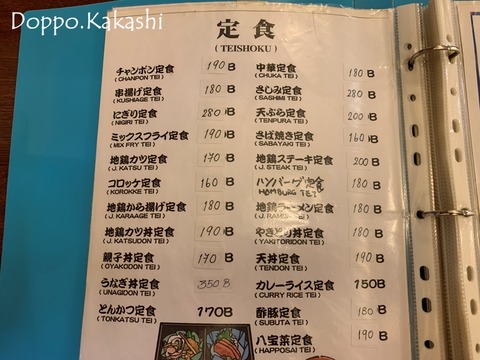 Doppo.Kakashi
定食
(TEISHOKU)
チャンポン定食 190B
(CHANPON TEI)
串揚げ定食 180B
(KUSHIAGE TEI)
にぎり定食 280B
(NIGIRI TEI)
ミックスフライ定食 190B
(MIX FRY TEI)
地鶏カツ定食 170B
(J. KATSU TEI)
コロッケ定食 160B
(KOROKKE TEI)
地鶏から揚げ定食 180B
(J. KARAAGE TEI)
地鶏カツ丼定食 190B
(J. KATSUDON TEI)
親子丼定食 170B
(OYAKODON TEI)
うなぎ丼定食 350B
(UNAGIDON TEI)
とんかつ定食 170B
(TONKATSU TEI)
中華定食 180B
(CHUKA TEI)
さしみ定食 280B
(SASHIMI TEI)
天ぷら定食 200B
(TENPURA TEI)
さば焼き定食 160B
(SABAYAKI TEI)
地鶏ステーキ定食 200B
(J. STEAK TEI)
ハンバーグ定食 180B
HAMBURG TEI
地鶏ラーメン定食 180B
(J. RAMEN TEI)
やきとり丼定食 180B
(YAKITORIDON TEI)
天丼定食 190B
(TENDON TEI)
カレーライス定食 150B
(CURRY RICE TEI)
酢豚定食 180B
(SUBUTA TEI)
八宝菜定食 190B
(HAPPOSAI TEI)